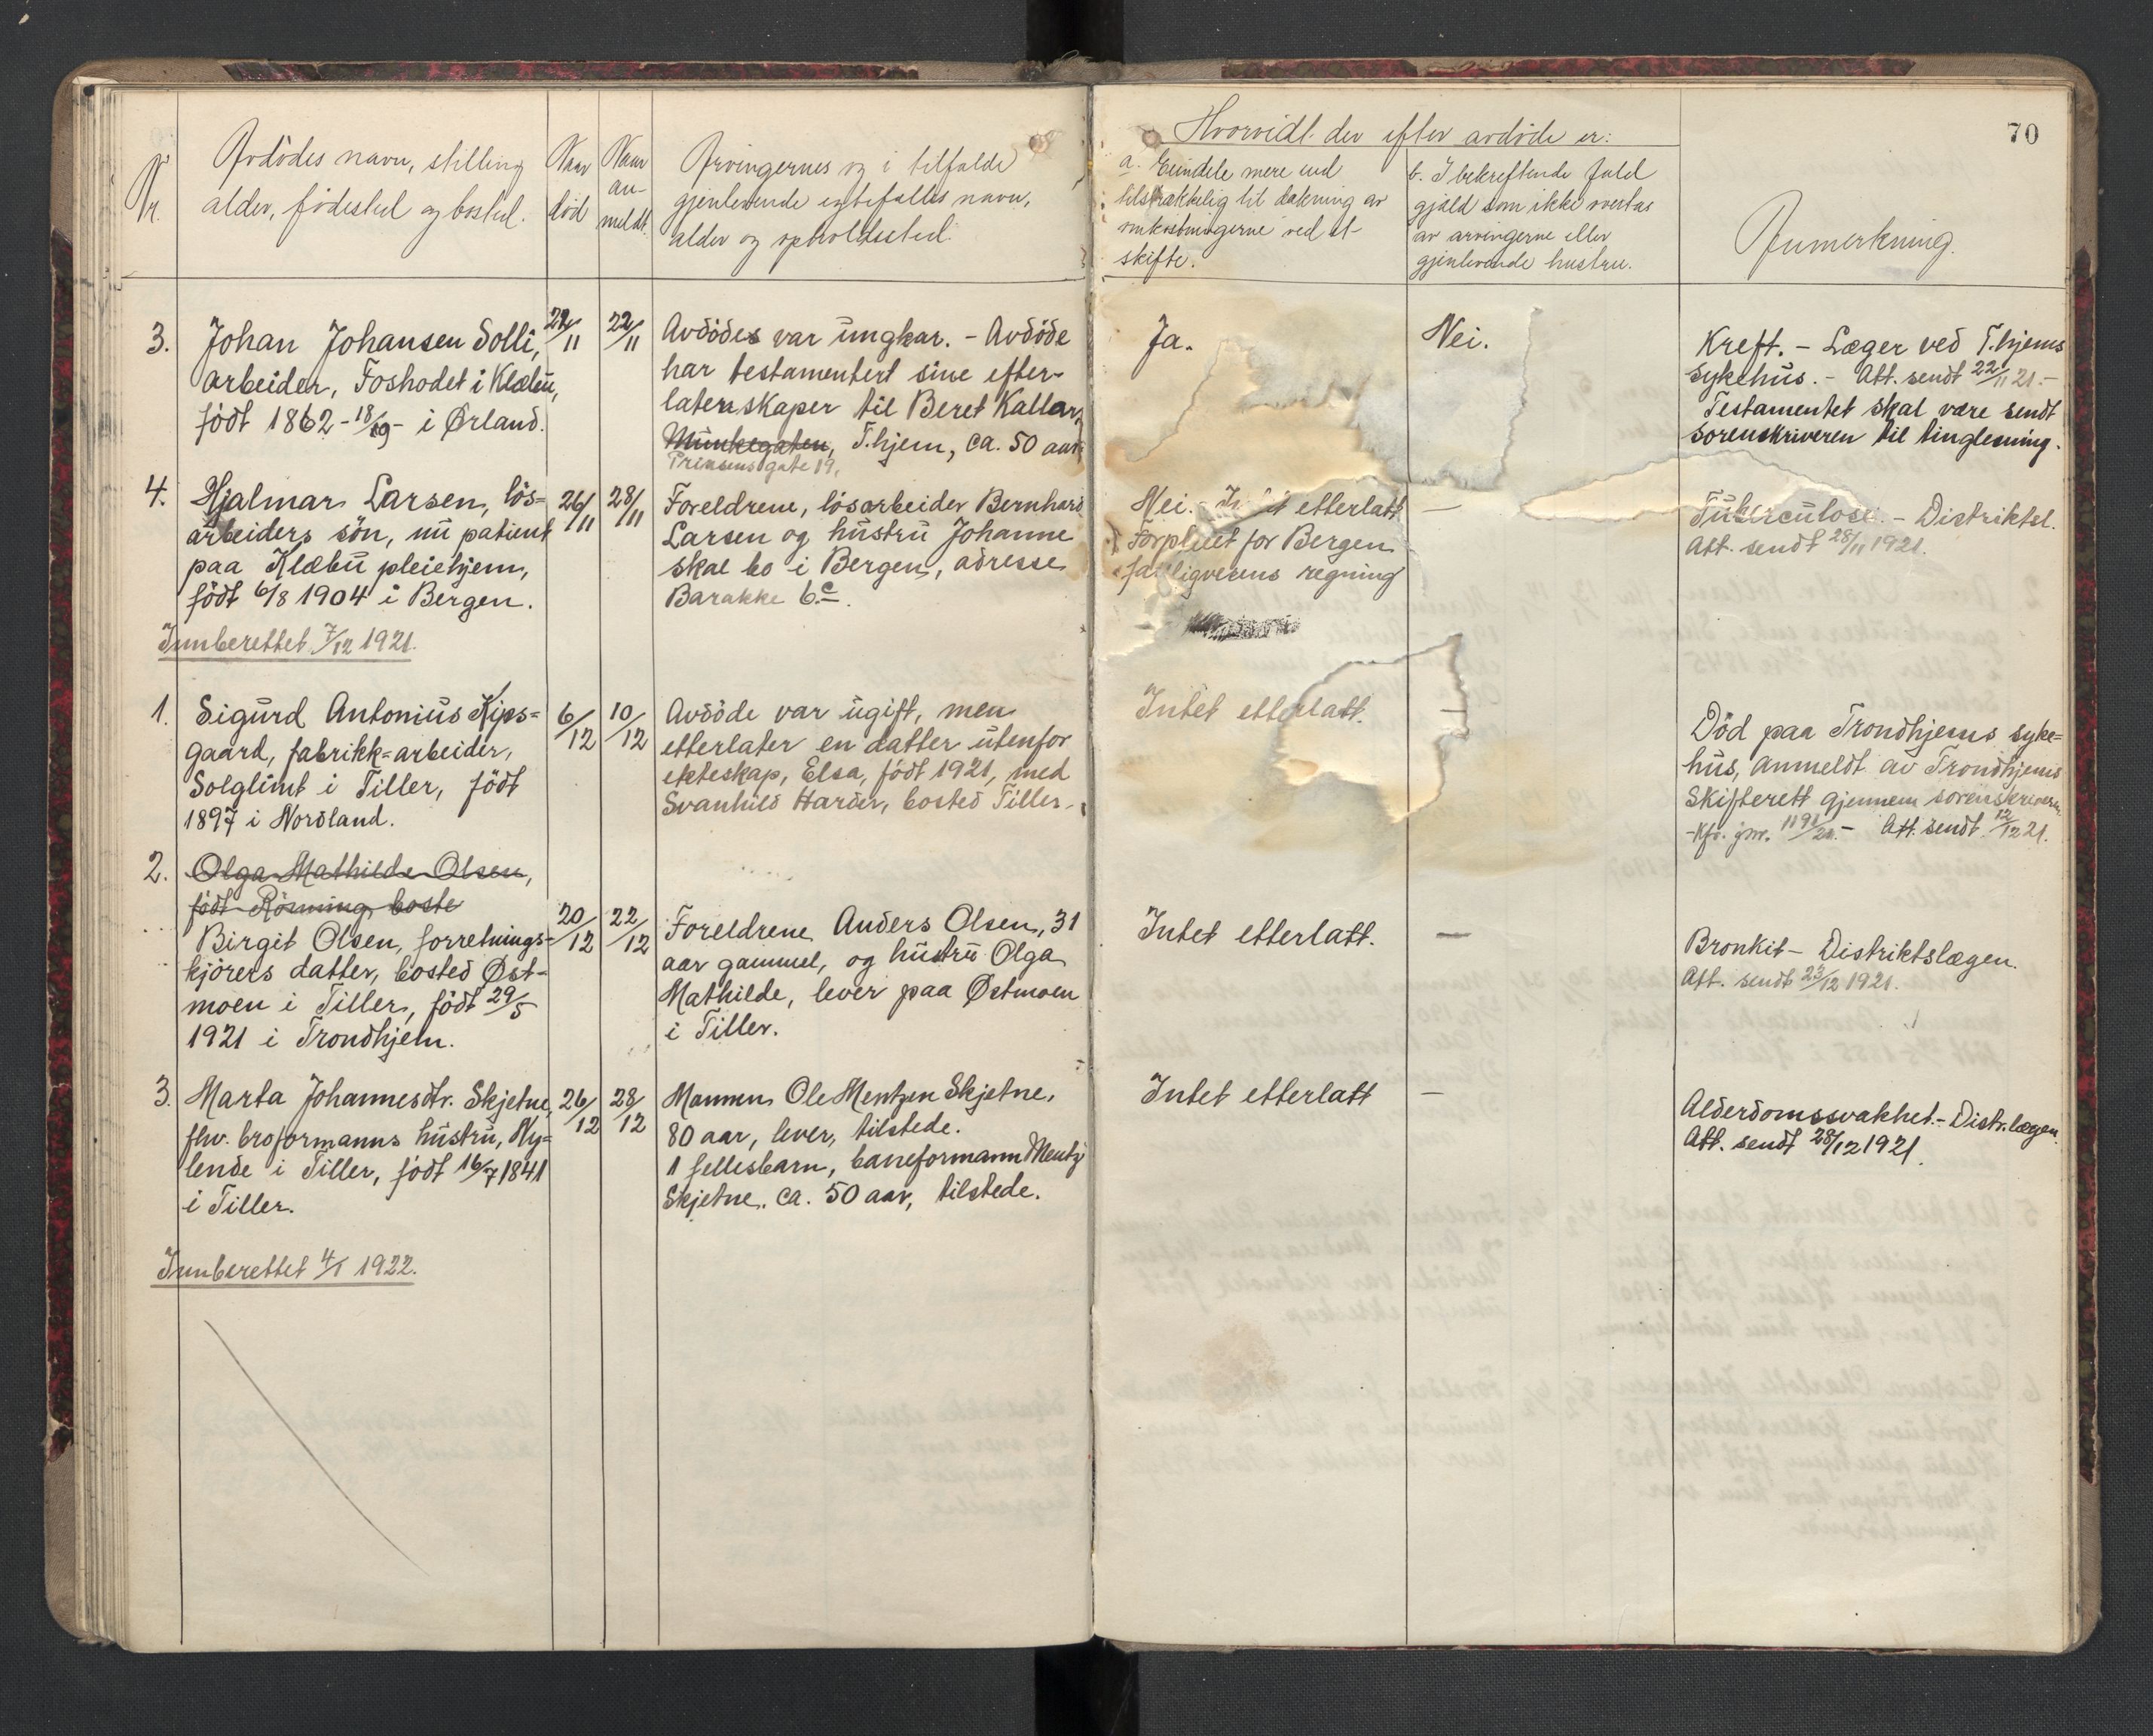 70
Nr.
Avdödes navn, stilling
alder, födested og bosted.
Naar
död
Naar
an-
meldt.
Arvingernes og i tilfælde
gjenlevende egtefælles navn,
alder og opholdssted.
Hvorvidt der efter avdöde er:
a. Eiendele mere end
tilstrækkelig til dækning av
omkostningerne ved et
skifte.
b. I bekreftende fald
gjæld som ikke overtas
av arvingerne eller
gjenlevende hustru.
Anmerkning.
3.
Johan Johansen Solli,
arbeider, Foshodet i Klæbu,
födt 1862-18/9- i Ørland.
21/11
22/11
Avdödes var ungkar. - Avdöde
har testamentert sine efter-
latenskaper til Beret Kallar,
Munkegaten, T.hjem, ca. 50 aar.
Prinsensgate 19.
Ja.
Nei.
Kreft. - Læger ved T.hjems
sykehus. - Att. sendt 22/11 21. -
Testamentet skal være sendt
sorenskriveren til tinglesning.
4.
Hjalmar Larsen, lös=
arbeiders sön, nu patient
paa Klæbu pleiehjem,
födt 6/8 1904 i Bergen.
26/11
28/11
Foreldrene, lösarbeider Bernhard
Larsen og hustru Johanne
skal bo i Bergen, adresse
Barakke 6c.
Nei. - etterlatt
Forpleiet for Bergen
regning
—
Tuberculose. - Distriktsl.
Att. sendt 28/11 1921.
Innberettet 7/12 1921.
1.
Sigurd Antonius Kips=
gaard, fabrikk=arbeider,
Solglimt i Tiller, födt
1897 i Nordland.
6/12
10/12
Avdöde var ugift, men
etterlater en datter utenfor
ekteskap, Elsa, födt 1921, med
Svanhild Harder, bosted Tiller.
Intet etterlatt.
—
Död paa Trondhjems syke=
hus, anmeldt av Trondhjems
Skifterett gjennem sorenskriveren
- Kfr. jnr. 1191/21. - Att. sendt 12/12 21.
2.
Olga Mathilde Olsen,
födt Rösning, boste
Birgit Olsen, forretnings-
kjörers datter, bosted Øst-
moen i Tiller, födt 29/5
1921 i Trondhjem.
20/12
22/12
Foreldrene Anders Olsen, 31
aar gammel, og hustru Olga
Mathilde, lever paa Østmoen
i Tiller.
Intet etterlatt.
—
Bronkit - Distriktslægen.
Att. sendt 23/12 1921.
3.
Marta Johannesdtr. Skjetne,
fhv. broformanns hustru, Ny=
lende i Tiller, födt 16/7 1841
i Tiller.
26/12
28/12
Mannen Ole Mentzen Skjetne,
80 aar, lever, tilstede.
1 fellesbarn, baneformann Mentz
Skjetne, ca. 50 aar, tilstede.
Intet etterlatt
—
Alderdomssvakhet. - Distr.lægen.
Att. sendt 28/12 1921.
Innberettet 4/1 1922.